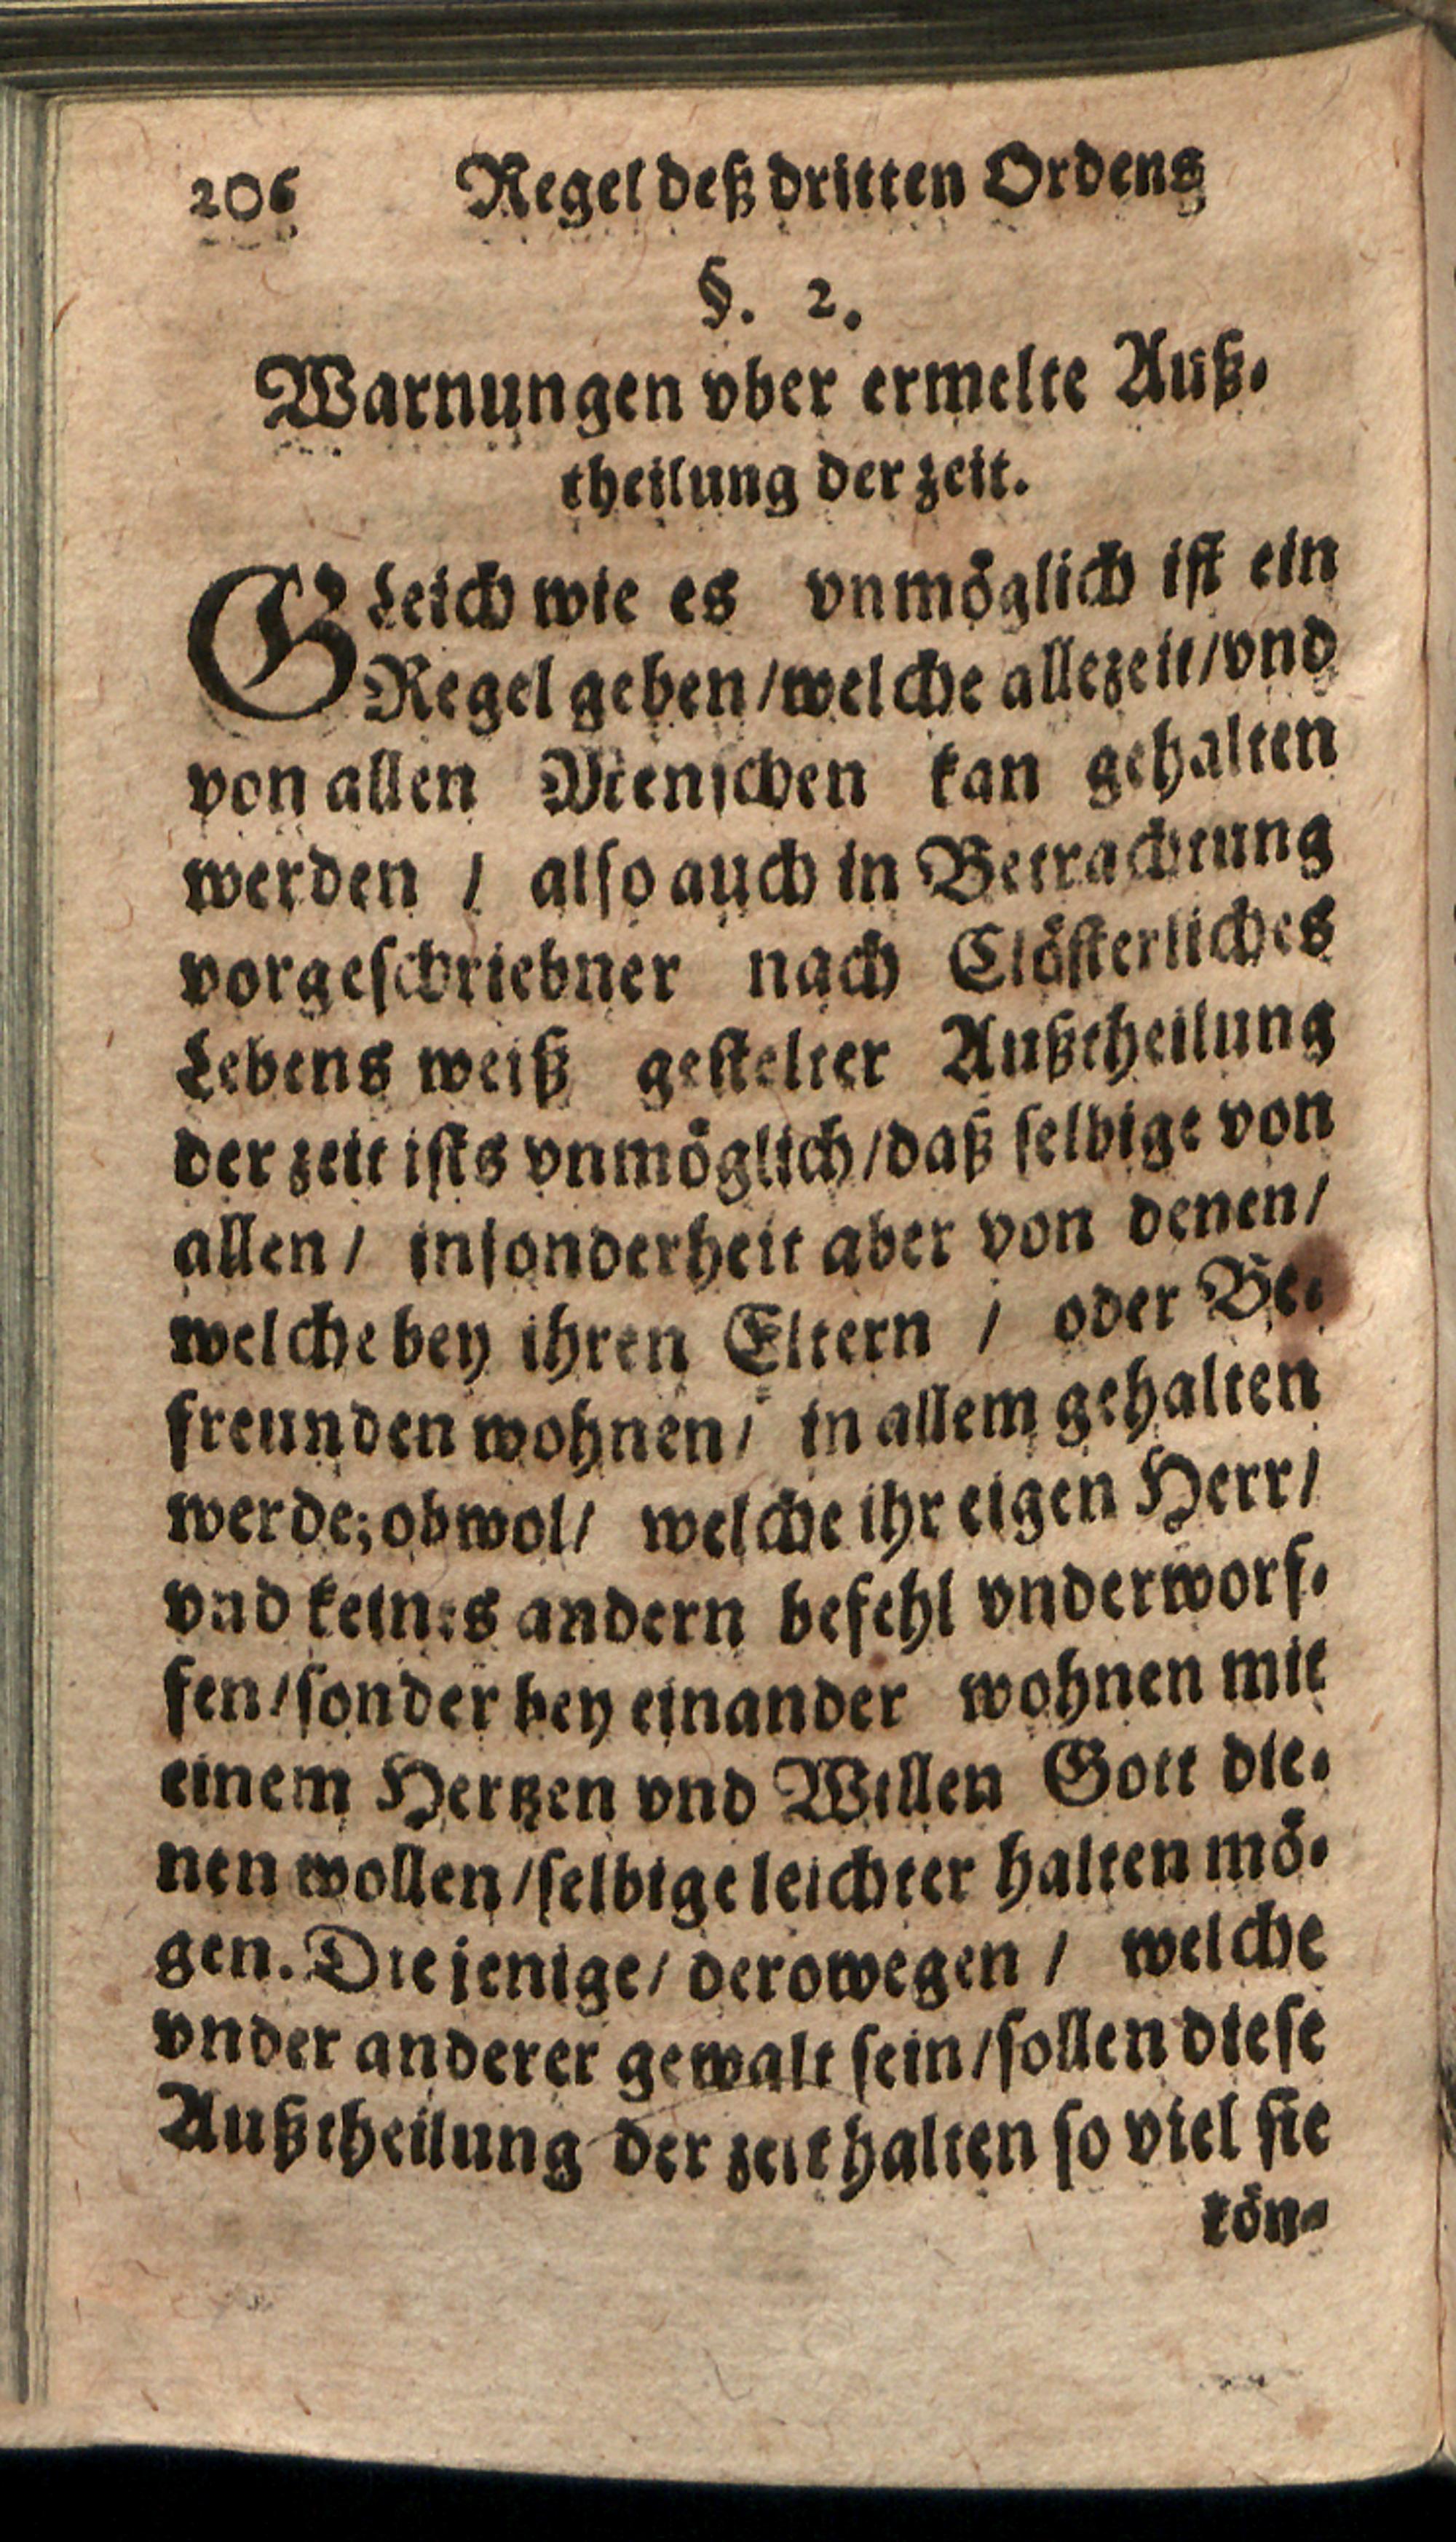 206 Regel deß dritten Ordens
§. 2.
Warnungen vber ermelte Auß-
theilung der zeit.
GLeich wie es vnmöglich ist ein
Regel geben/welche allezeit/vnd
von allen Menschen kan gehalten
werden / also auch in Betrachtung
vorgeschriebner nach Clösterliches
Lebens weiß gestelter Außtheilung
der zeit ists vnmöglich/daß selbige von
allen/ insonderheit aber von denen/
welche bey ihren Eltern / oder Be-
freunden wohnen/ in allem gehalten
werde; obwol/ welche ihr eigen Herr/
vnd keines andern befehl vnderworf-
fen/sonder bey einander wohnen mit
einem Hertzen vnd Willen Gott die-
nen wollen/selbige leichter halten mö-
gen. Die jenige/ derowegen / welche
vnder anderer gewalt sein/sollen diese
Außtheilung der zeit halten so viel sie
kön-